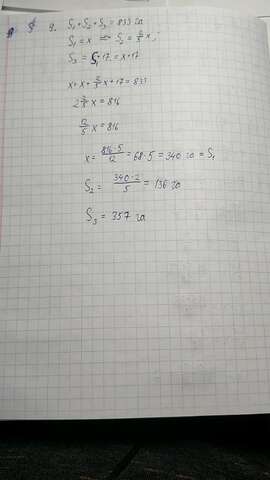 9. S₁ + S₂ + S₃ = 833 га
S₁ = x ⇒ S₂ = 2/5 x;
S₃ = S₁ + 17 = x + 17
x + x + 2/5 x + 17 = 833
2 2/5 x = 816
12/5 x = 816
x = 816·5/12 = 68·5 = 340 га = S₁
S₂ = 340·2/5 = 136 га
S₃ = 357 га